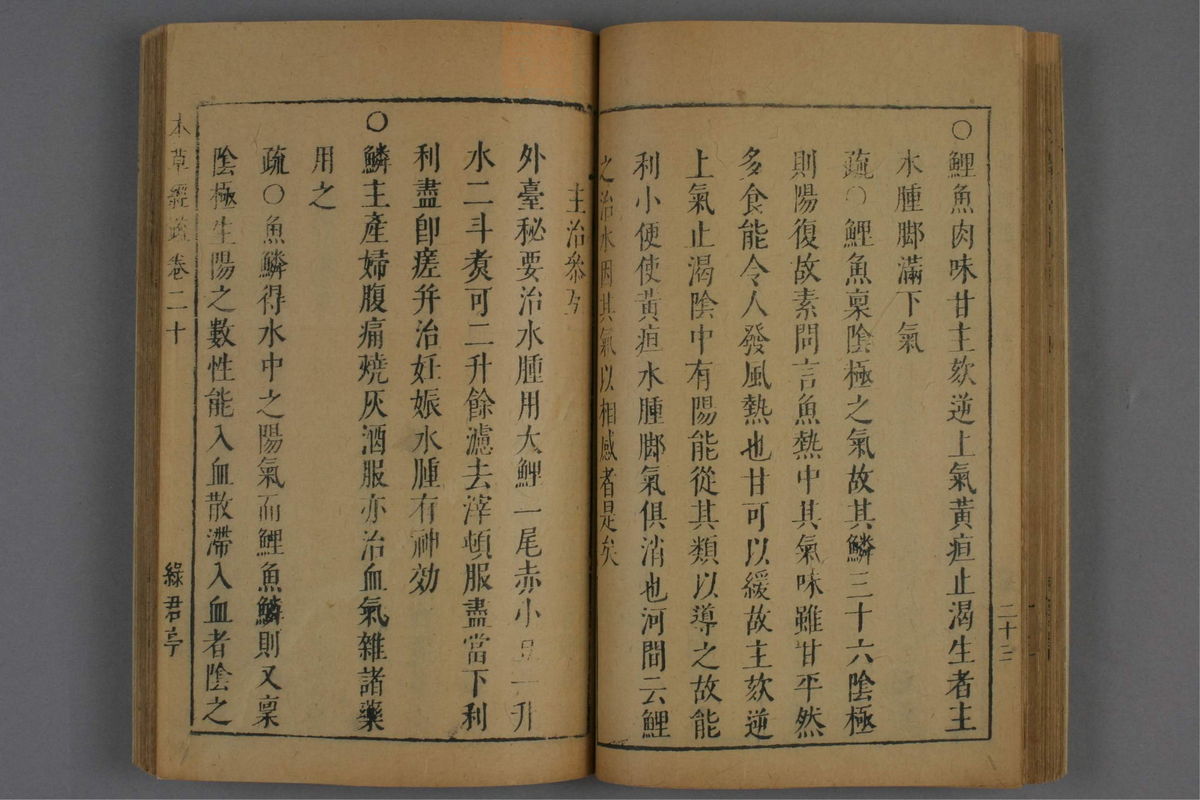 〇鯉魚肉味甘主欬逆上氣黃疸止渴生者主
水腫脚滿下氣
疏〇鯉魚稟陰極之氣故其鱗三十六陰極
則陽復故素問言魚熱中其氣味雖甘平然
多食能令人發風熱也甘可以緩故主欬逆
上氣止渴陰中有陽能從其類以導之故能
利小便使黃疸水腫脚氣俱消也河間云鯉
之治水因其氣以相感者是矣
二十三
主治參互
外臺秘要治水腫用大鯉一尾赤小豆一升
水二斗煑可二升餘濾去滓頓服盡當下利
利盡卽瘥幷治妊娠水腫有神効
〇鱗主產婦腹痛燒灰酒服亦治血氣雜諸藥
用之
疏〇魚鱗得水中之陽氣而鯉魚鱗則又稟
陰極生陽之數性能入血散滯入血者陰之
本草經疏卷二十
綠君亭